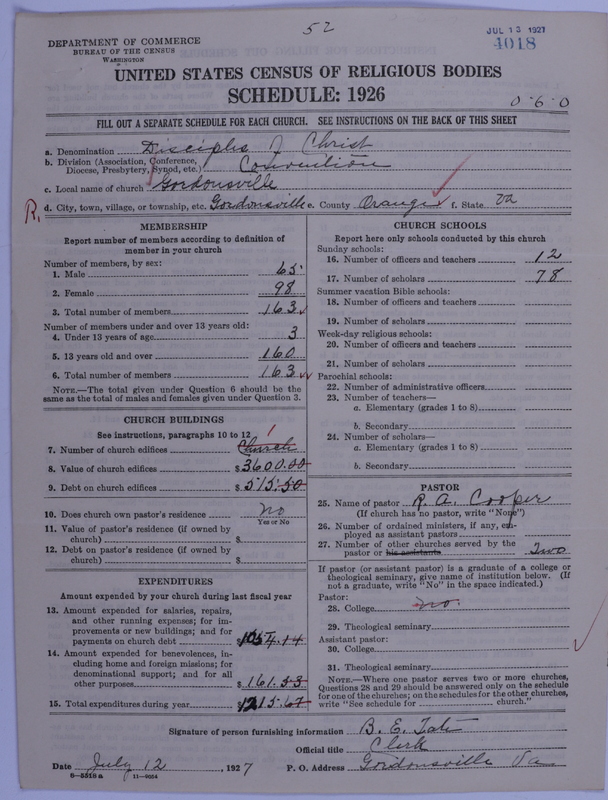 52
JUL 13 1927
4018
DEPARTMENT OF COMMERCE
BUREAU OF THE CENSUS
WASHINGTON
UNITED STATES CENSUS OF RELIGIOUS BODIES
SCHEDULE: 1926
0-6-0
FILL OUT A SEPARATE SCHEDULE FOR EACH CHURCH. SEE INSTRUCTIONS ON THE BACK OF THIS SHEET
a. Denomination Disciples of Christ
b. Division (Association, Conference, Diocese, Presbytery, Synod, etc.) Convention
c. Local name of church Gordonsville
R. d. City, town, village, or township, etc. Gordonsville e. County Orange f. State Va
MEMBERSHIP
Report number of members according to definition of
member in your church
Number of members, by sex:
1. Male 65
2. Female 98
3. Total number of members 163
Number of members under and over 13 years old:
4. Under 13 years of age 3
5. 13 years old and over 160
6. Total number of members 163
NOTE.—The total given under Question 6 should be
same as the total of males and females given under Question 3.
CHURCH BUILDINGS
See instructions, paragraphs 10 to 12
7. Number of church edifices Church 1
8. Value of church edifices $3600.00
9. Debt on church edifices $515.50
10. Does church own pastor's residence No
Yes or No
11. Value of pastor's residence (if owned by
church) $
12. Debt on pastor's residence (if owned by
church) $
EXPENDITURES
Amount expended by your church during last fiscal year
13. Amount expended for salaries, repairs,
and other running expenses; for im-
provements or new buildings; and for
payments on church debt $1054.14
14. Amount expended for benevolences, in-
cluding home and foreign missions; for
denominational support; and for all
other purposes $161.53
15. Total expenditures during year $1215.67
CHURCH SCHOOLS
Report here only schools conducted by this church
Sunday schools:
16. Number of officers and teachers 12
17. Number of scholars 78
Summer vacation Bible schools:
18. Number of officers and teachers
19. Number of scholars
Week-day religious schools:
20. Number of officers and teachers
21. Number of scholars
Parochial schools:
22. Number of administrative officers
23. Number of teachers—
a. Elementary (grades 1 to 8)
b. Secondary
24. Number of scholars—
a. Elementary (grades 1 to 8)
b. Secondary
PASTOR
25. Name of pastor R. A. Cooper
(If church has no pastor, write "None")
26. Number of ordained ministers, if any, em-
ployed as assistant pastors
27. Number of other churches served by the
pastor or his assistants Two
If pastor (or assistant pastor) is a graduate of a college or
theological seminary, give name of institution below. (If
not a graduate, write "No" in the space indicated.)
Pastor:
28. College no.
29. Theological seminary
Assistant pastor:
30. College
31. Theological seminary
NOTE.—Where one pastor serves two or more churches,
Questions 28 and 29 should be answered only on the schedule
for one of the churches; on the schedules for the other churches,
write "See schedule for church."
Signature of person furnishing information B. E. Tate
Official title Clerk
Date July 12, 1927 P. O. Address Gordonsville Va
8-5518a 11-9054